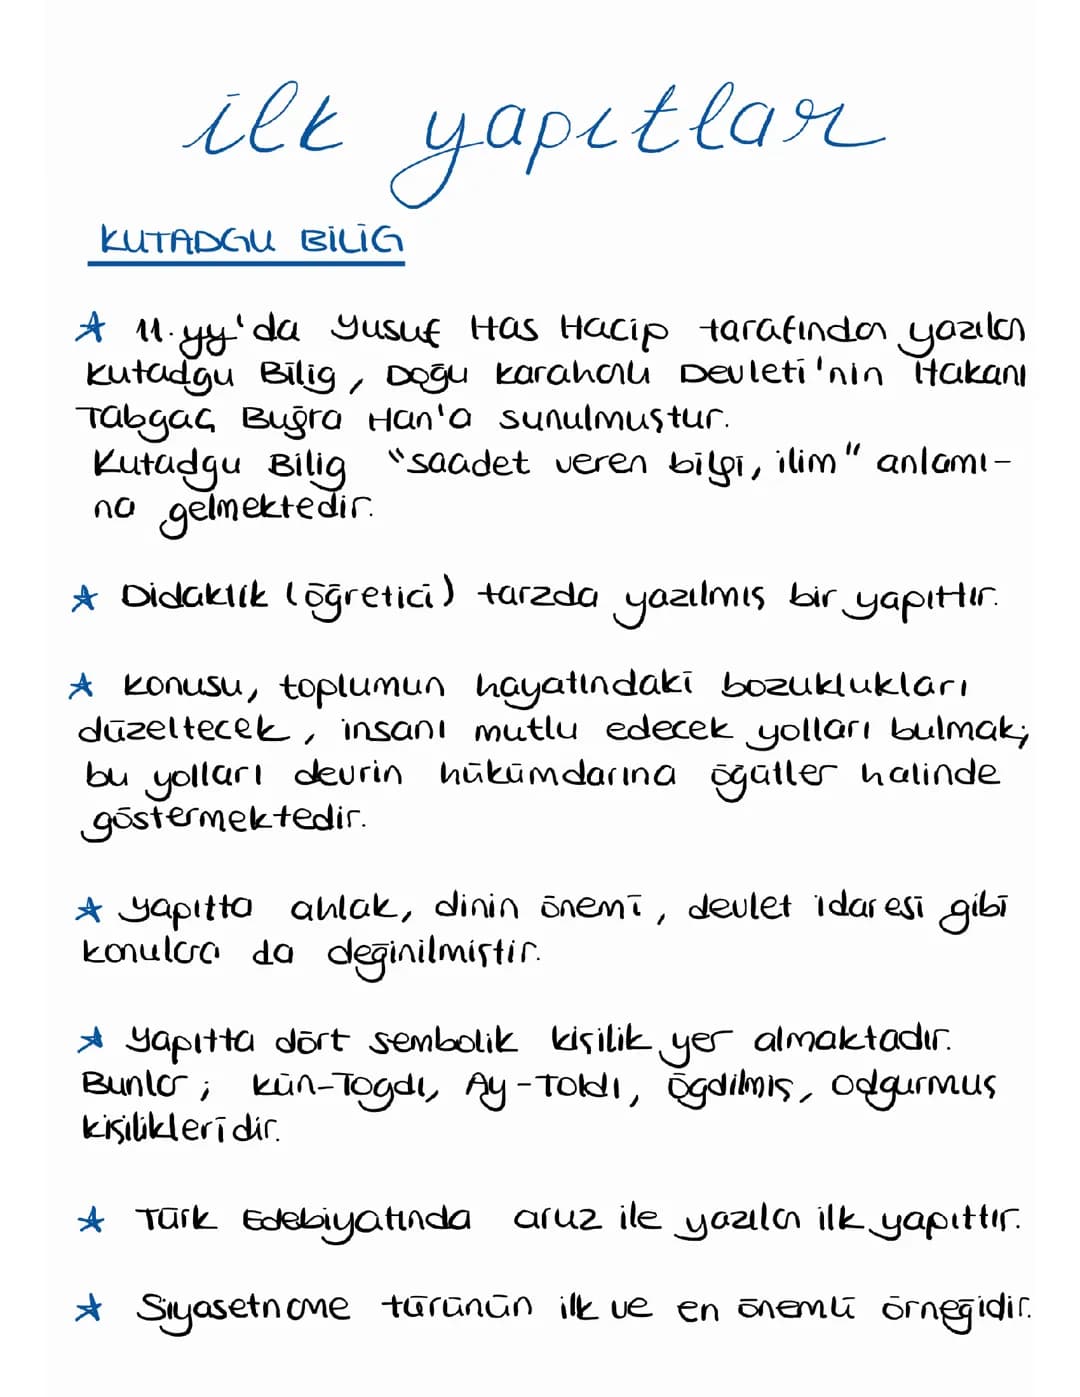 ilk yapıtlar
KUTADGU BİLİG
★ 11.yy'da Yusuf Has Hacip tarafından yazılan
Kutadgu Bilig, Doğu Karahanlı Devleti'nin Hakanı
Tabgaç Buğra Han'a sunulmuştur.
Kutadgu Bilig "saadet veren bilgi, ilim" anlamı-
na gelmektedir.
★ Didaktik (öğretici) tarzda yazılmış bir yapıttır.
★ Konusu, toplumun hayatındaki bozuklukları
düzeltecek, insanı mutlu edecek yolları bulmak;
bu yolları devrin hükümdarına öğütler halinde
göstermektedir.
★ Yapıtta ahlak, dinin önemi, devlet idaresi gibi
konulara da değinilmiştir.
★ Yapıtta dört sembolik kişilik yer almaktadır.
Bunlar; Kün-Togdı, Ay-Toldı, Ögdilmiş, Odgurmuş
kişilikleridir.
★ Türk Edebiyatında aruz ile yazılan ilk yapıttır.
★ Siyasetname türünün ilk ve en önemli örneğidir.